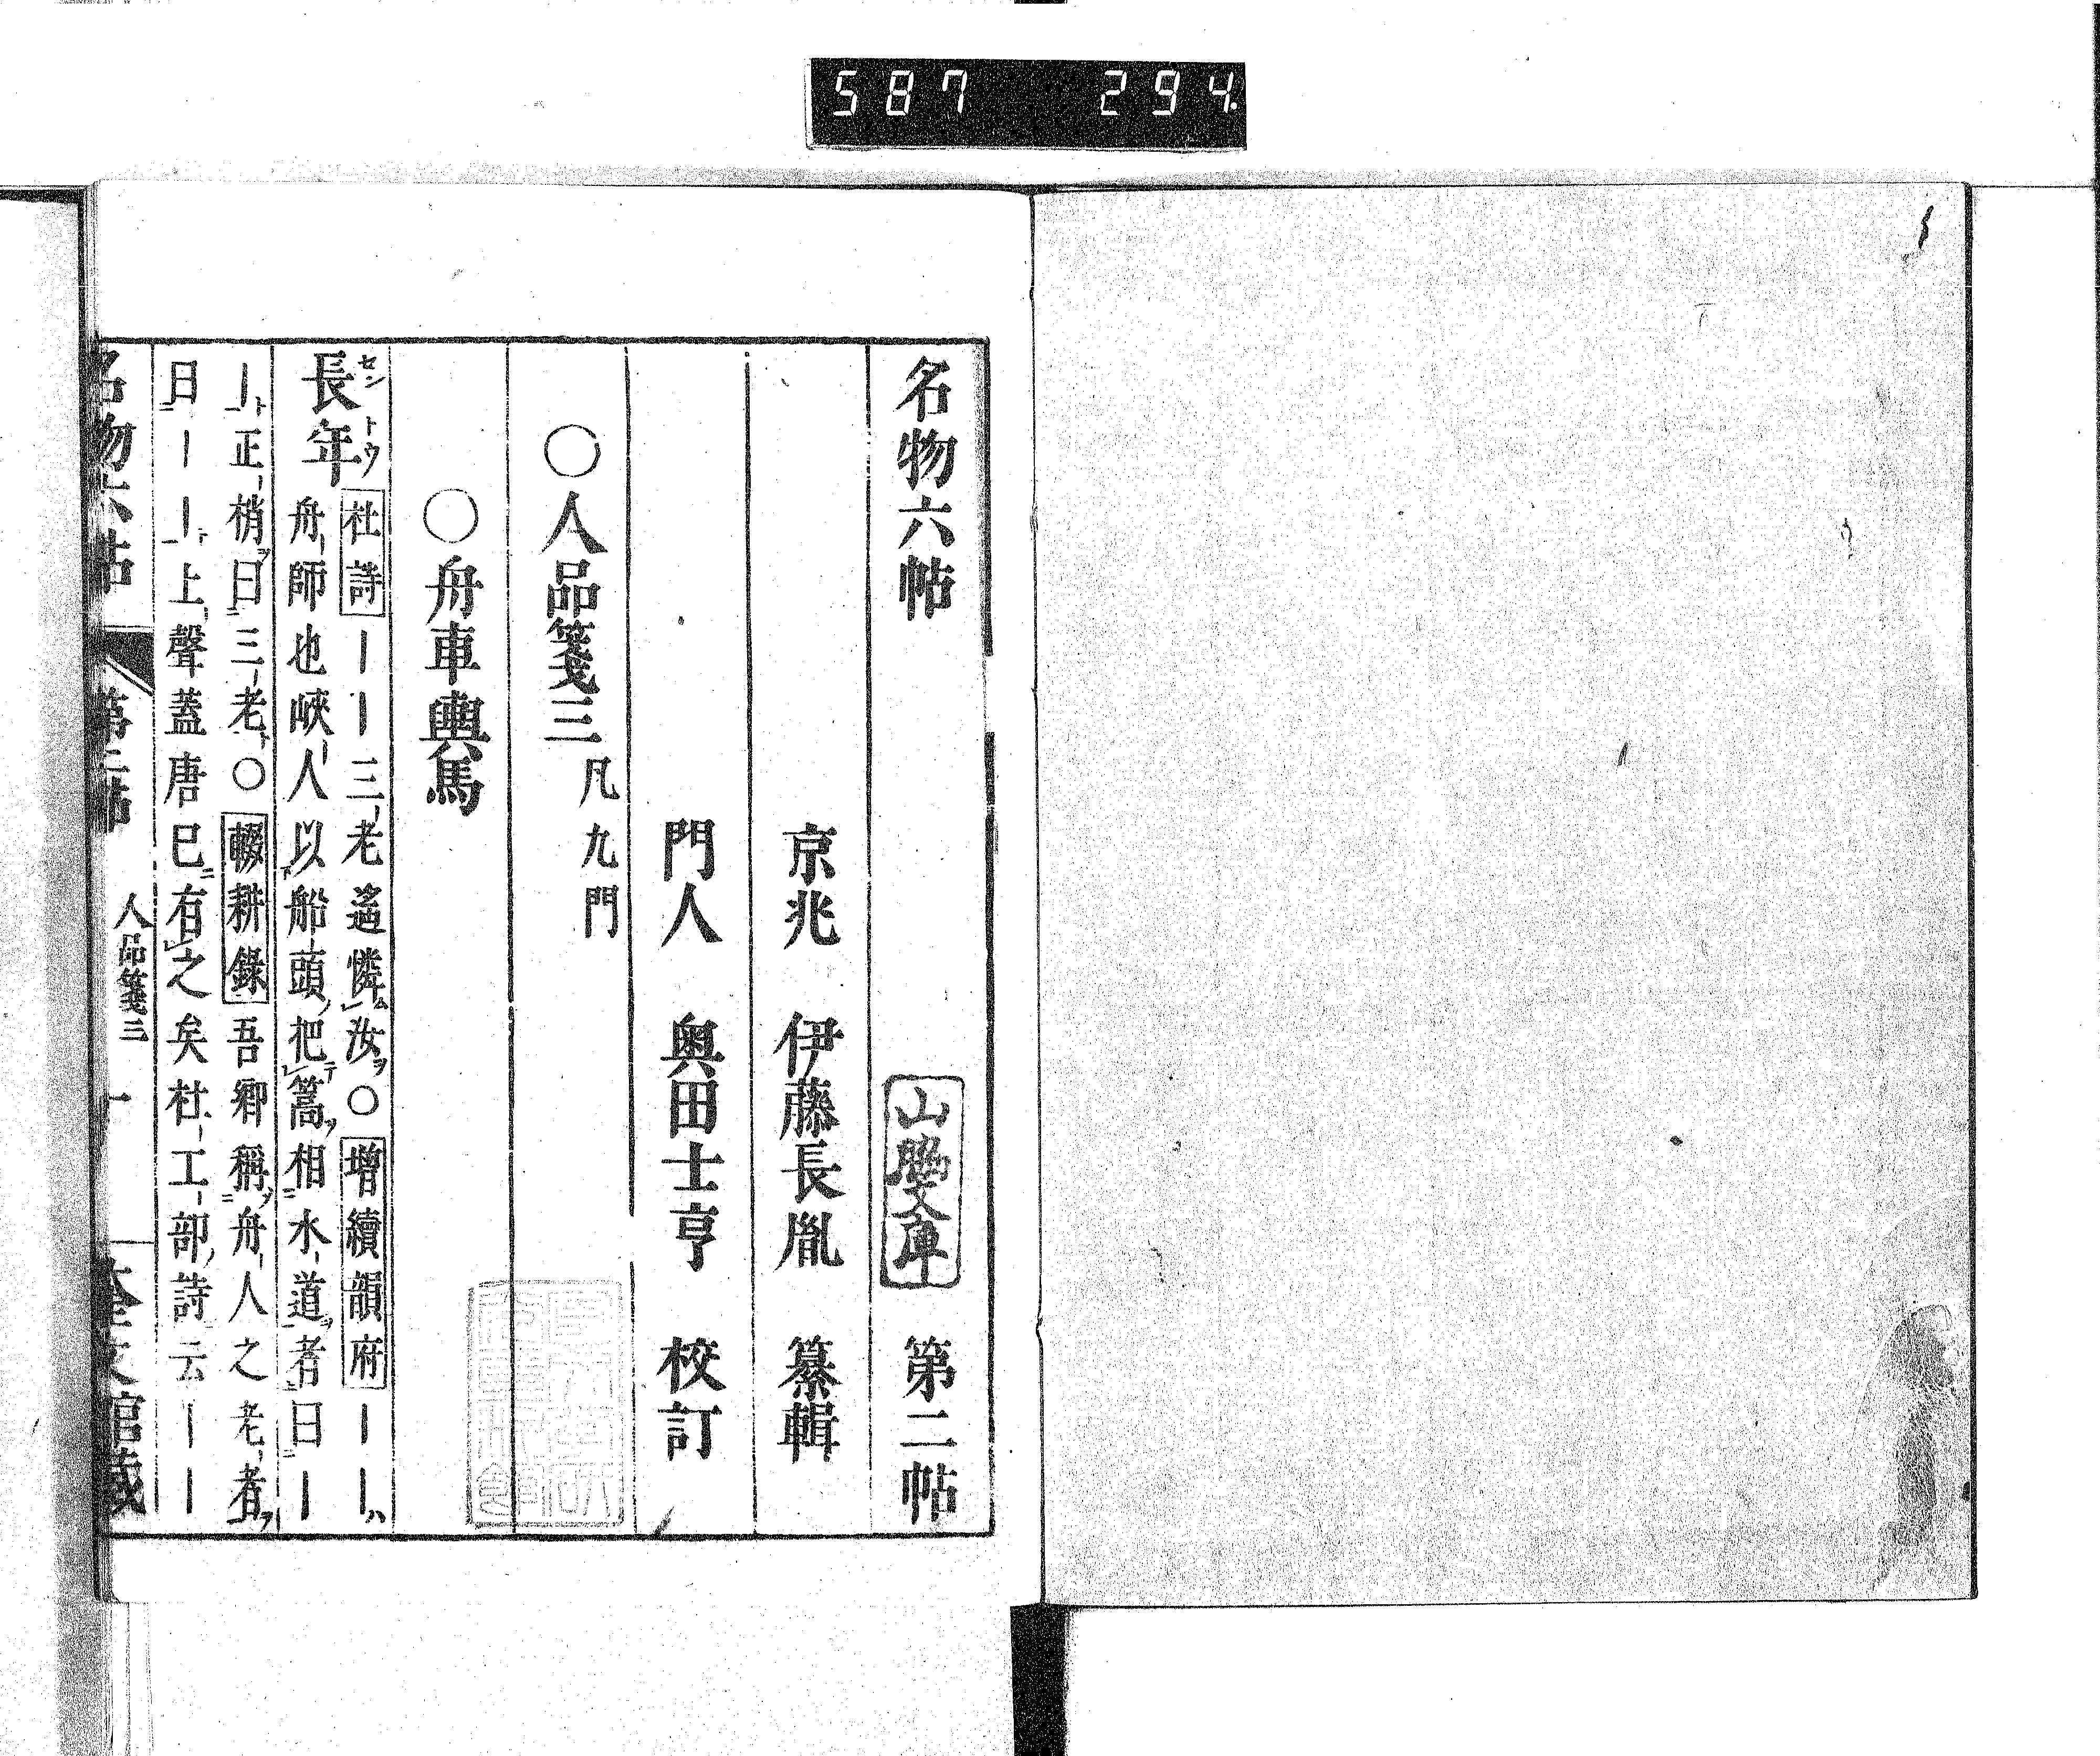 587 294.
名物六帖 第二帖
山脇文庫
京兆 伊藤長胤 纂輯
門人 奥田士亨 校訂
〇人品箋三 凡九門
〇舟車輿馬
長年 センドウ
杜詩｜｜三老遙憐汝〇增續韻府｜｜ハ
舟師也峽人以船頭把篙相水道者曰｜
｜正梢曰三老〇輟耕錄吾鄉稱舟人之老者
曰｜｜上聲蓋唐已有之矣杜工部詩云｜｜
名物六帖 第二帖 人品箋三 一 奎文館藏